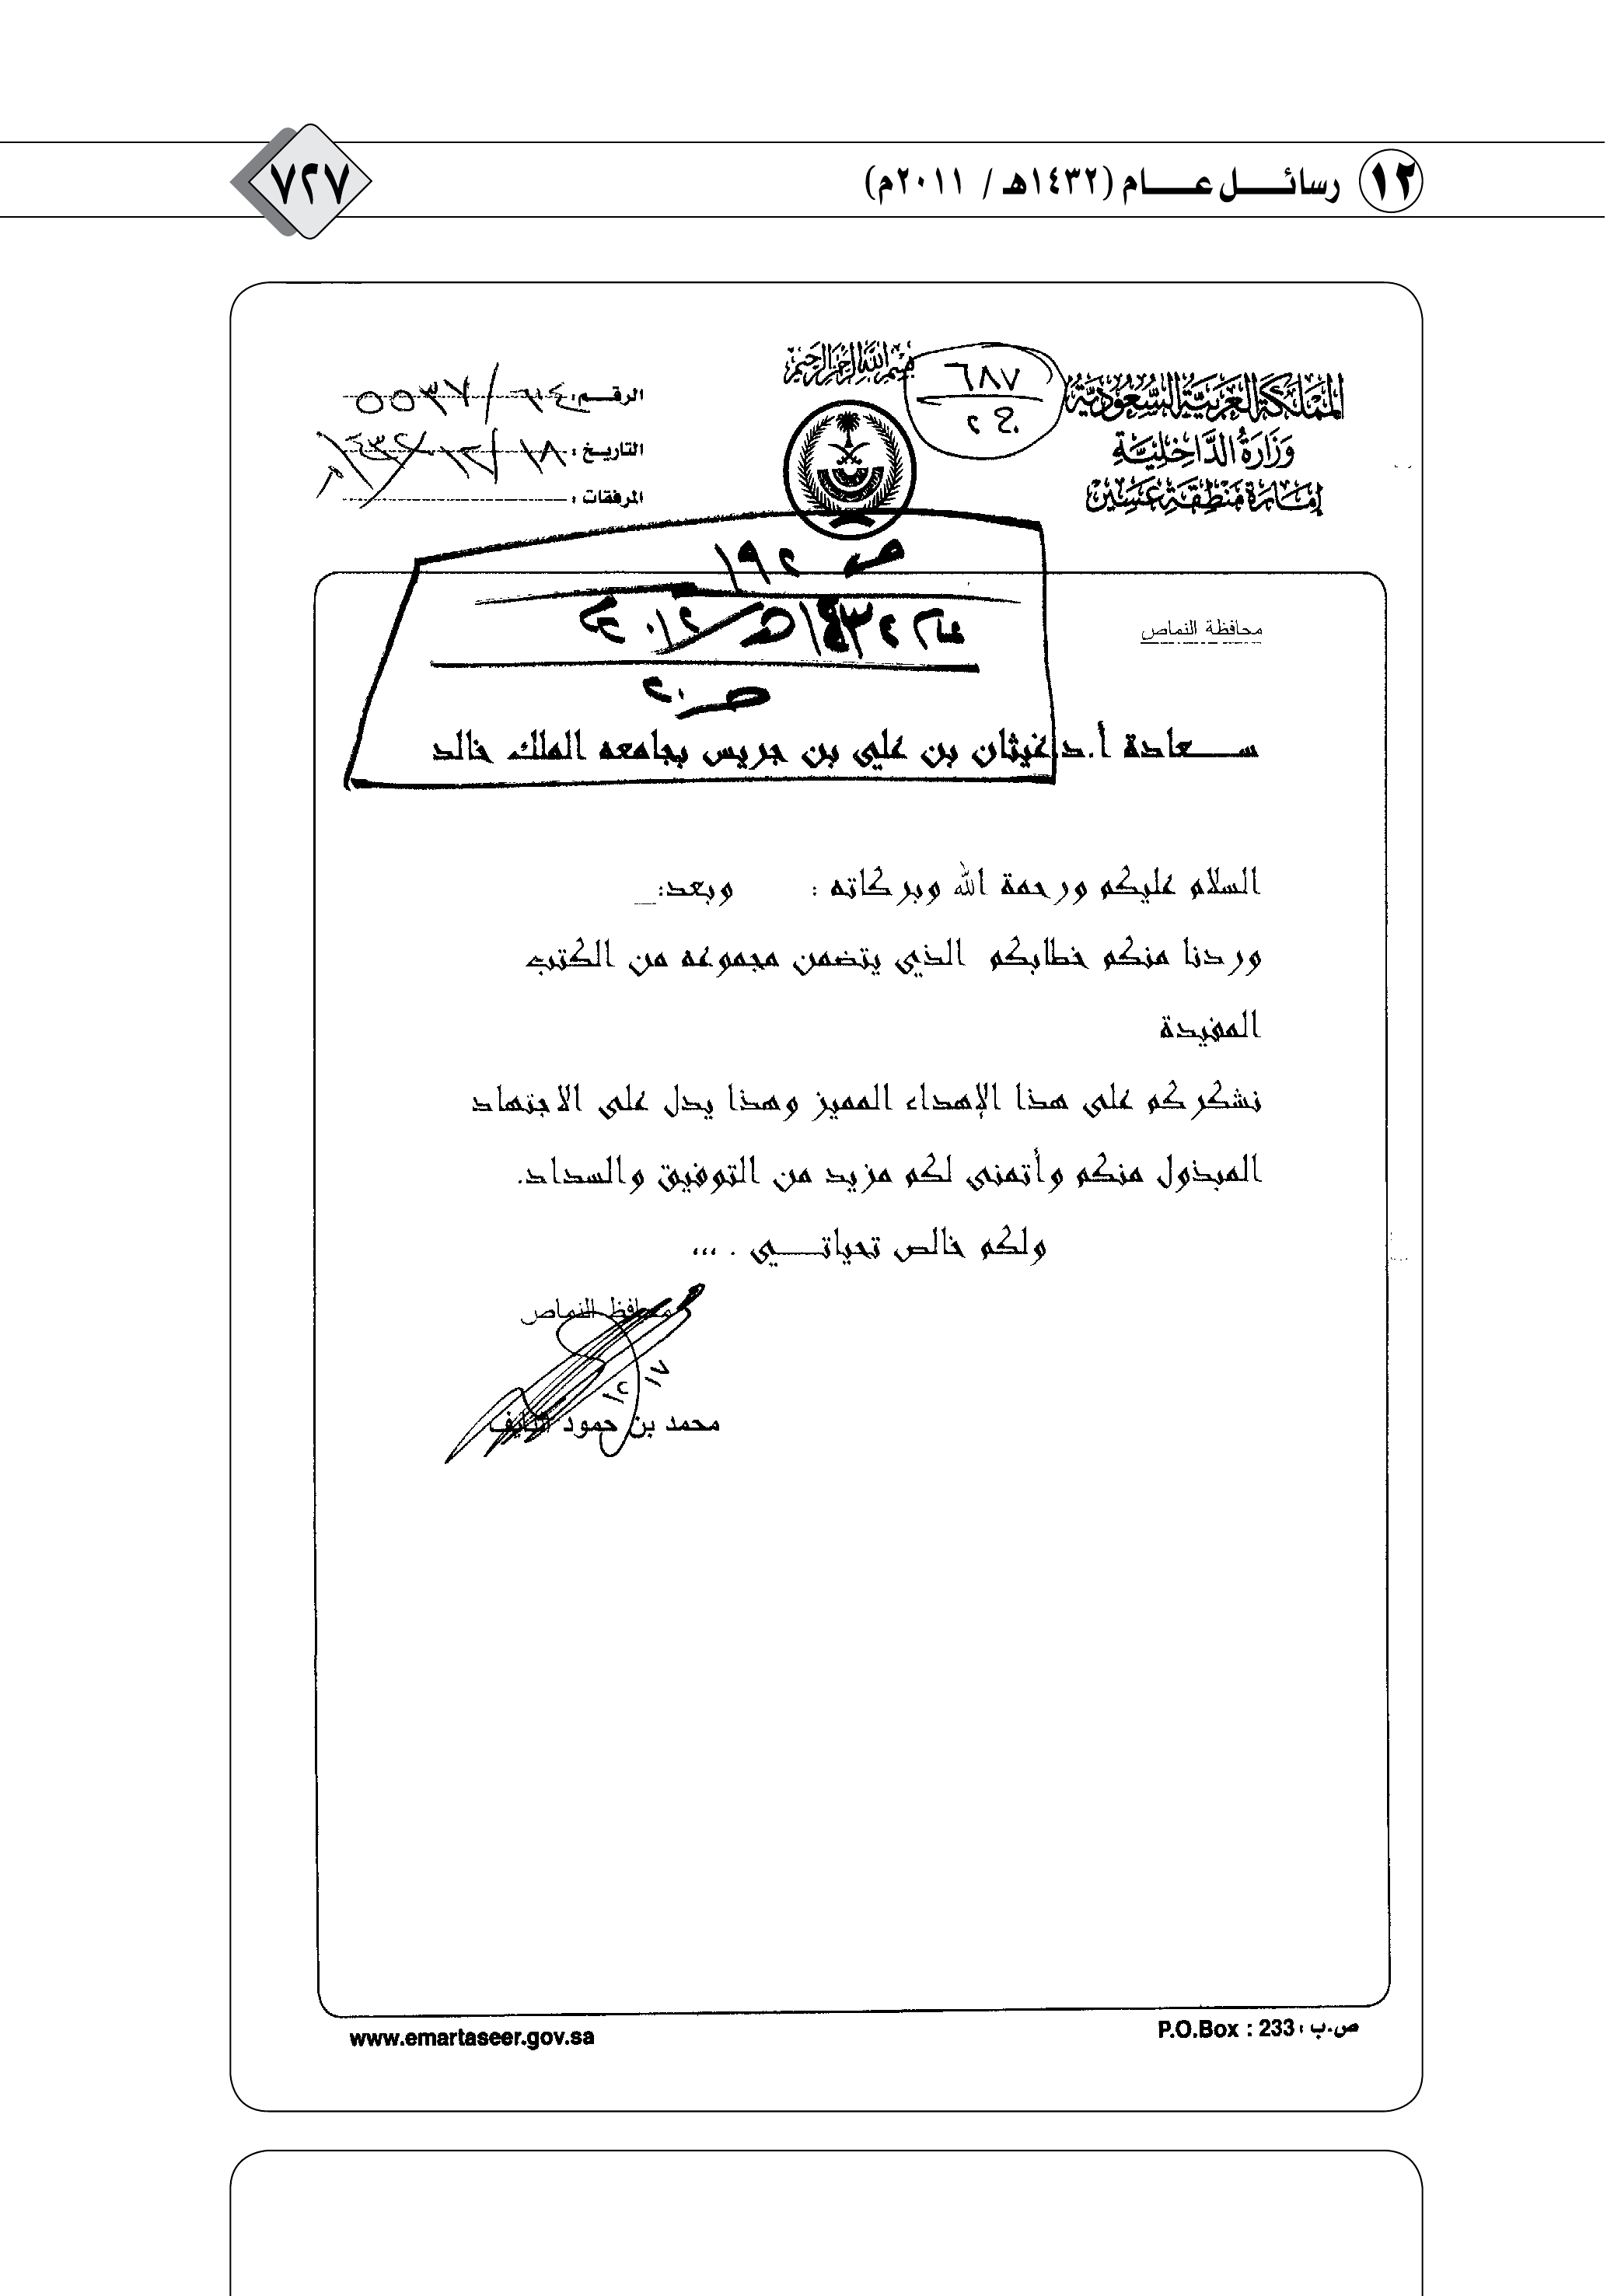 ١٢ رسائل عام (١٤٣٢هـ / ٢٠١١م)
٧٢٧
بسم الله الرحمن الرحيم
المملكة العربية السعودية
وزارة الداخلية
إمارة منطقة عسير
٦٨٧
ج ٢
الرقم :
التاريخ : ١٨/١٢/١٤٣٢
المرفقات :
ص ١٩٢
ص ٢٠
محافظة النماص
سعادة أ.د.غيثان بن علي بن جريس بجامعه الملك خالد
السلام عليكم ورحمة الله وبركاته : وبعد:_
وردنا منكم خطابكم الذي يتضمن مجموعه من الكتب
المفيدة
نشكركم على هذا الإهداء المميز وهذا يدل على الاجتهاد
المبذول منكم وأتمنى لكم مزيد من التوفيق والسداد.
ولكم خالص تحياتي . ...
محافظ النماص
١٧
١٢
محمد بن حمود النايف
ص.ب : P.O.Box : 233
www.emartaseer.gov.sa